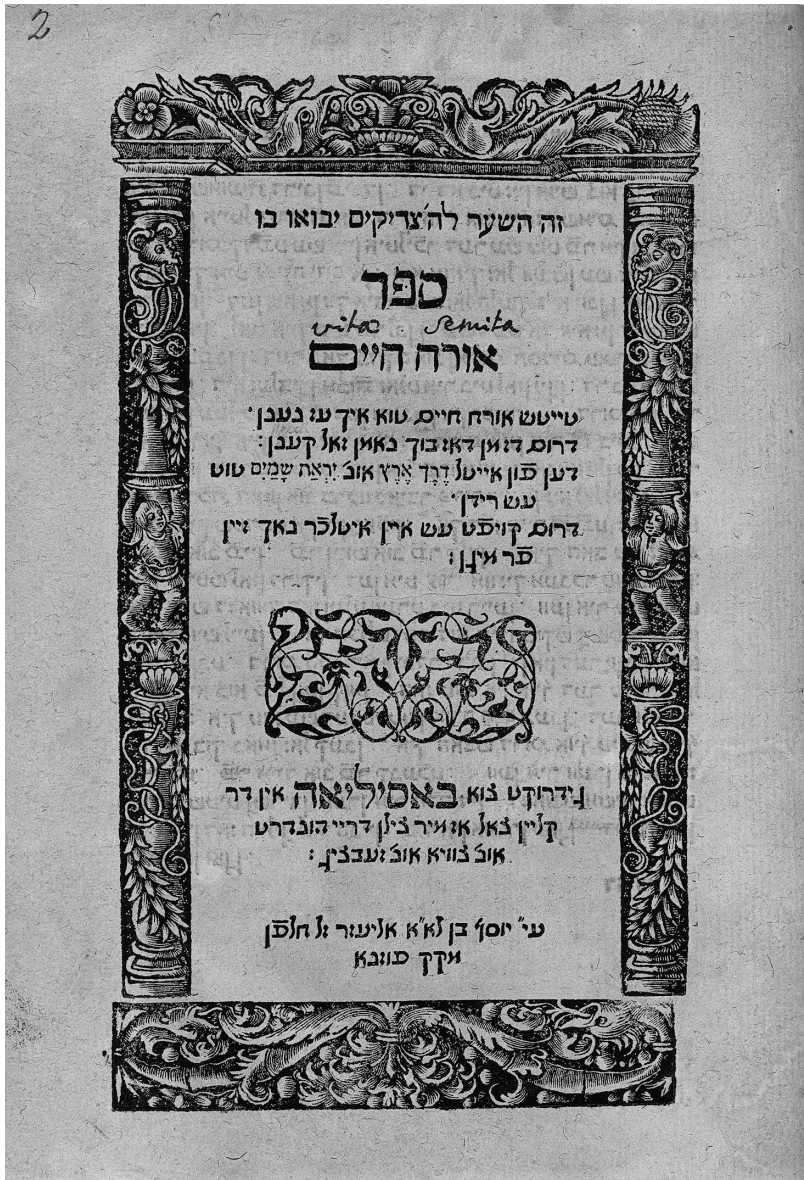 2
זה השער לה׳ צדיקים יבואו בו
ספר
vitæ . Semita
אורח חיים
טייטש אורח חיים טוא איך עז נענן׳
דרום דז מן דאז בוך נאמן זאל קענן:
דען פֿון אייטל דֶרֶךְ אֶרֶץ אונ׳ יִרְאַת שָמַיִם טוט
עש רידן׳
דרום קויפֿט עש איין איטלכֿר נאך זיין
פֿר מיגן:
גידרוקט צוא באסיליאה אין דר
קליין צאל אז מיר צילן דרייא הונדרט
אונ׳ צוויא אונ׳ זעבציג:
ע״י יוסף בן לא״א אליעזר זל חלפֿן
מקק פוזנא